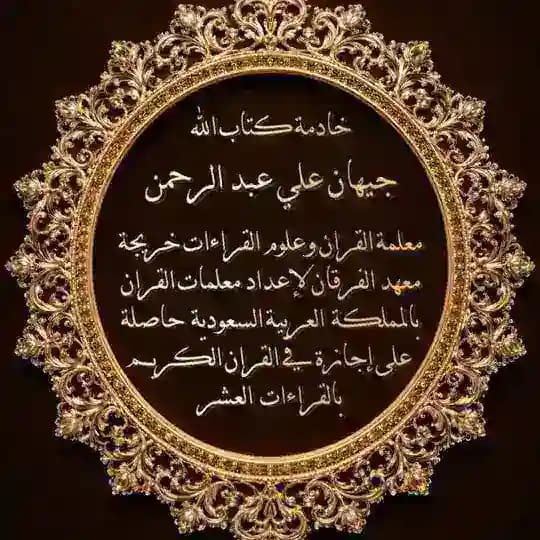 خادمة كتاب الله
جيهان علي عبد الرحمن
معلمة القران وعلوم القراءات خريجة
معهد الفرقان لإعداد معلمات القران
بالمملكة العربية السعودية حاصلة
على إجازة في القران الكريم
بالقراءات العشر